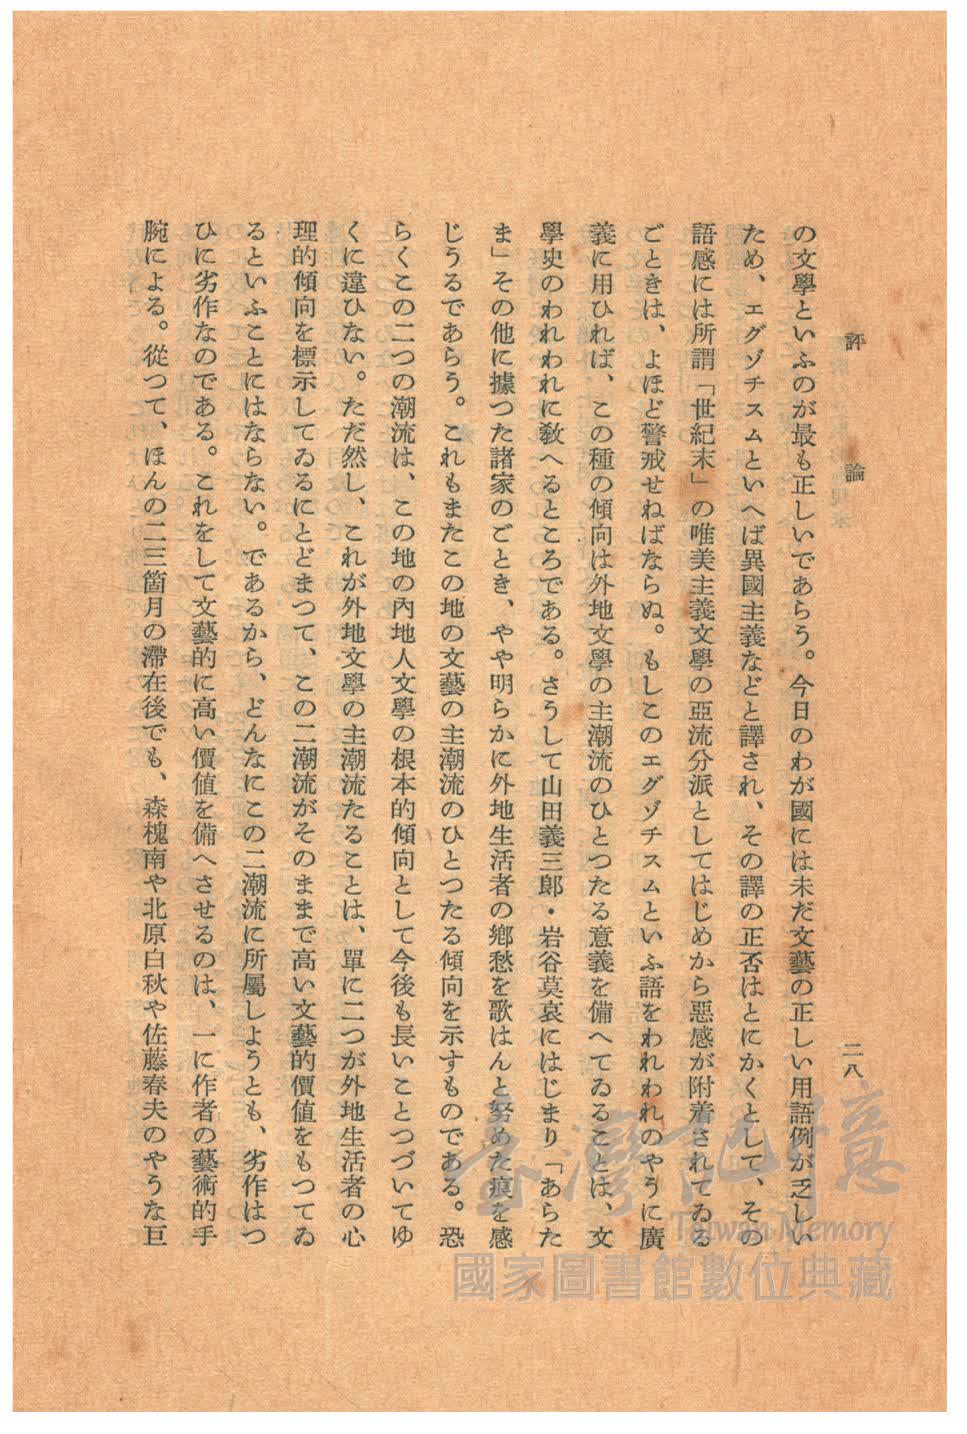 評論
二八
の文學といふのが最も正しいであらう。今日のわが國には未だ文藝の正しい用語例が乏しい
ため、エグゾチスムといへば異國主義などと譯され、その譯の正否はとにかくとして、その
語感には所謂「世紀末」の唯美主義文學の亞流分派としてはじめから惡感が附着されてゐる
ごときは、よほど警戒せねばならぬ。もしこのエグゾチスムといふ語をわれわれのやうに廣
義に用ひれば、この種の傾向は外地文學の主潮流のひとつたる意義を備へてゐることは、文
學史のわれわれに敎へるところである。さうして山田義三郎・岩谷莫哀にはじまり「あらた
ま」その他に據つた諸家のごとき、やや明らかに外地生活者の鄕愁を歌はんと努めた痕を感
じうるであらう。これもまたこの地の文藝の主潮流のひとつたる傾向を示すものである。恐
らくこの二つの潮流は、この地の內地人文學の根本的傾向として今後も長いことつづいてゆ
くに違ひない。ただ然し、これが外地文學の主潮流たることは、單に二つが外地生活者の心
理的傾向を標示してゐるにとどまつて、この二潮流がそのままで高い文藝的價値をもつてゐ
るといふことにはならない。であるから、どんなにこの二潮流に所屬しようとも、劣作はつ
ひに劣作なのである。これをして文藝的に高い價値を備へさせるのは、一に作者の藝術的手
腕による。從つて、ほんの二三箇月の滯在後でも、森槐南や北原白秋や佐藤春夫のやうな巨
臺灣記憶
Taiwan Memory
國家圖書館數位典藏